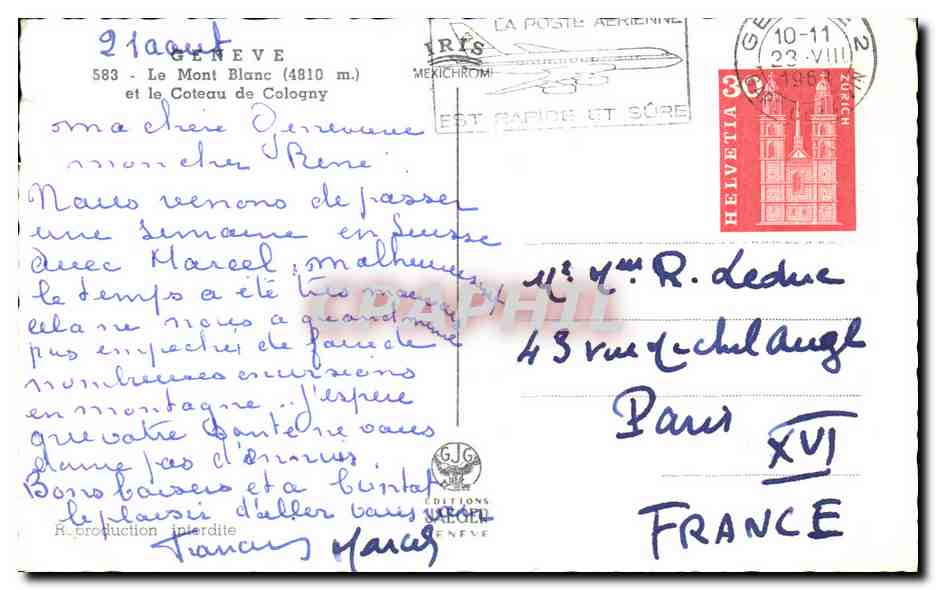 21 aout
GENEVE
583 - Le Mont Blanc (4810 m.)
et le Coteau de Cologny
IRIS
MEXICHROM
LA POSTE AERIENNE
EST RAPIDE ET SÛRE
10-11
23.VIII
30
HELVETIA
ZÜRICH
ma chère Genevieve
mon cher René
Nous venons de passer
une semaine en Suisse
avec Marcel, malheureusement
le temps a été très mauvais
cela ne nous a quand même
pas empechés de faire de
nombreuses excursions
en montagne. J'espère
que votre santé ne vous
donne pas d'ennuis
Bons baisers et a bientot
le plaisir d'aller vous voir
Marcel
Mr. Mme R. Leduc
43 rue Michel Ange
Paris
XVI
FRANCE
CPAPHIL
GJG
EDITIONS
JAEGER
GENEVE
Reproduction interdite